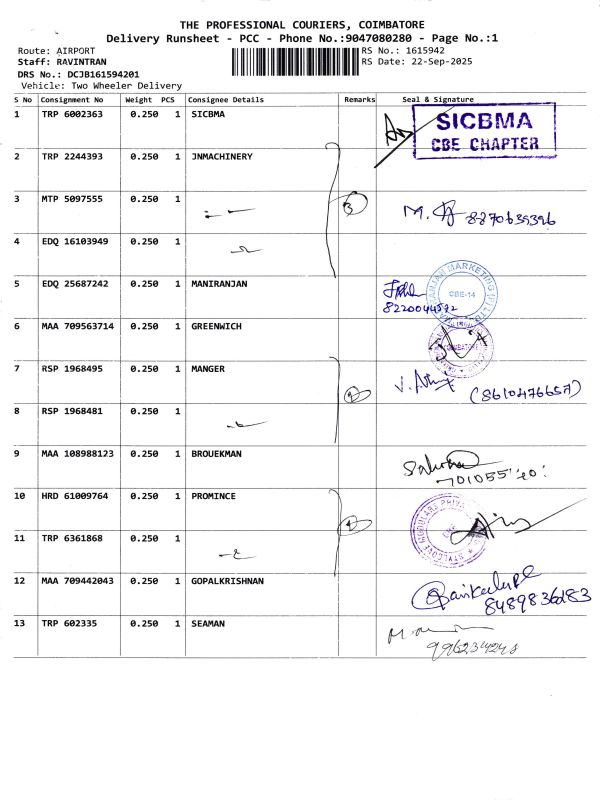 THE PROFESSIONAL COURIERS, COIMBATORE
Delivery Runsheet - PCC - Phone No.:9047080280 - Page No.:1
Route: AIRPORT
RS No.: 1615942
Staff: RAVINTRAN
RS Date: 22-Sep-2025
DRS No.: DCJB161594201
Vehicle: Two Wheeler Delivery
S No Consignment No Weight PCS Consignee Details Remarks Seal & Signature
1 TRP 6002363 0.250 1 SICBMA
SICBMA
CBE CHAPTER
2 TRP 2244393 0.250 1 JNMACHINERY
3 MTP 5097555 0.250 1
3
8870639396
4 EDQ 16103949 0.250 1
5 EDQ 25687242 0.250 1 MANIRANJAN
CBE-14
8220044592
6 MAA 709563714 0.250 1 GREENWICH
7 RSP 1968495 0.250 1 MANGER
2
(8610476657)
8 RSP 1968481 0.250 1
9 MAA 108988123 0.250 1 BROUEKMAN
10 HRD 61009764 0.250 1 PROMINCE
11 TRP 6361868 0.250 1
12 MAA 709442043 0.250 1 GOPALKRISHNAN
8489836183
13 TRP 602335 0.250 1 SEAMAN
9962374248